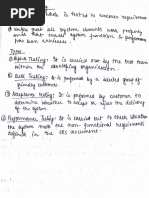 is tested to uncover requirement
① Verifies that all system elements work properly
and that overall system functions & performance
has been achieved.
Types :-
① Alpha Testing: It is carried out by the test team
within the developing organisation.
② Beta Testing: It is performed by a selected group of
friendly customers.
③ Acceptance Testing: It is performed by customer to
determine whether to accept or reject the delivery
of system.
④ Performance Testing: It is carried out to check whether
the system meets the non-functional requirements
defined in the SRS document.